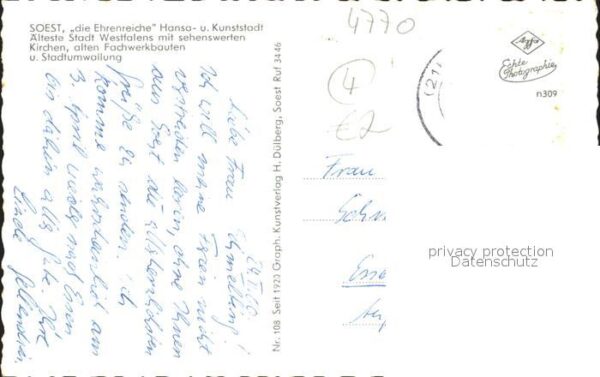 SOEST, „die Ehrenreiche" Hansa- u. Kunststadt
Älteste Stadt Westfalens mit sehenswerten
Kirchen, alten Fachwerkbauten
u. Stadtumwallung
4770
4
€2
Agfa
Echte
Photographie
n309
(21
Nr. 108 Seit 1923 Graph. Kunstverlag H. Dülberg, Soest Ruf 3446
Liebe Frau
Ich will meine Ferien nicht
verstreichen lassen ohne Ihnen
aus Soest die allerherzlichsten
Grüße zu senden. Ich
komme wahrscheinlich am
3. April wieder nach Essen
bis dahin alles Gute. Ihre
Frau
Esse
privacy protection
Datenschutz